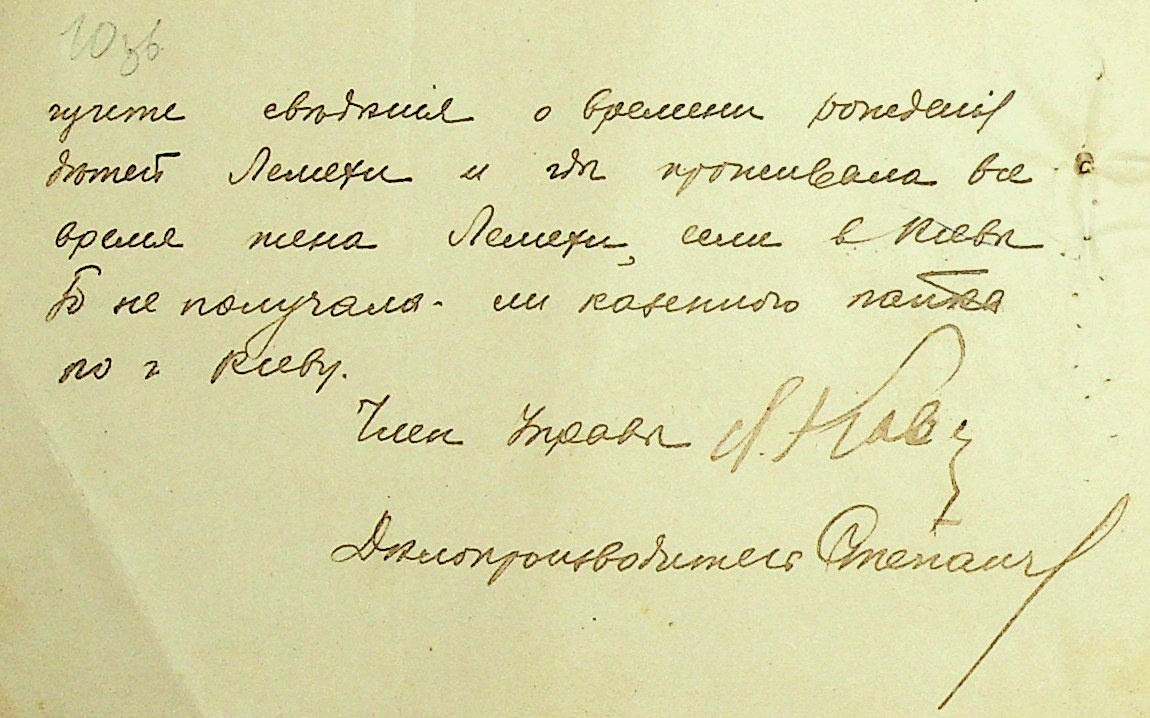 10 зв
лучите свѣдѣнія о времени рожденія
дѣтей Лемехи и гдѣ проживала все
время жена Лемехи, если в Кіевѣ
то не получала-ли казенного пайка
по г Кіеву.
Член Управы
Дѣлопроизводитель